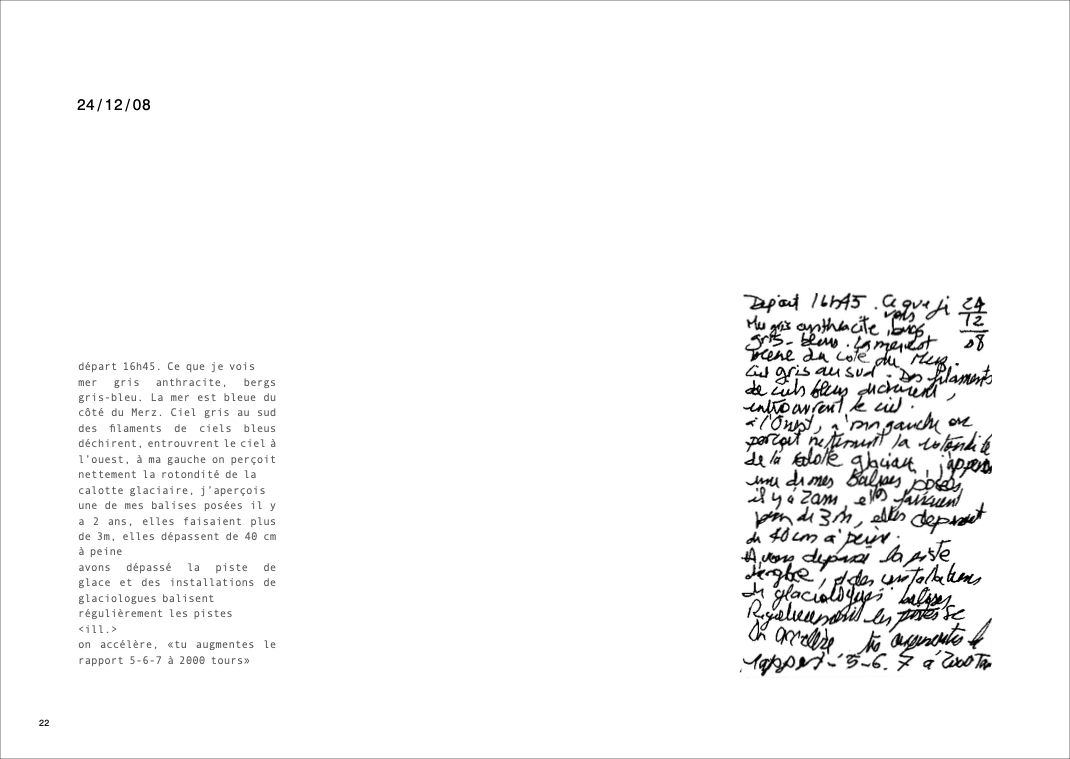 24/12/08
départ 16h45. Ce que je vois
mer gris anthracite, bergs
gris-bleu. La mer est bleue du
côté du Merz. Ciel gris au sud
des filaments de ciels bleus
déchirent, entrouvrent le ciel à
l'ouest, à ma gauche on perçoit
nettement la rotondité de la
calotte glaciaire, j'aperçois
une de mes balises posées il y
a 2 ans, elles faisaient plus
de 3m, elles dépassent de 40 cm
à peine
avons dépassé la piste de
glace et des installations de
glaciologues balisent
régulièrement les pistes
<ill.>
on accélère, «tu augmentes le
rapport 5-6-7 à 2000 tours»
Départ 16h45. Ce que je
vois
24
12
08
Mer gris anthracite, bergs
gris-bleu. La mer est
bleue du côté du Merz.
Ciel gris au sud. Des filaments
de ciels bleus déchirent,
entrouvrent le ciel.
à l'Ouest, à ma gauche on
perçoit nettement la rotondité
de la calotte glaciaire, j'aperçois
une de mes balises posées
il y a 2 ans, elles faisaient
plus de 3m, elles dépassent
de 40 cm à peine.
Avons dépassé la piste
de glace, et des installations
de glaciologues balisent
Régulièrement les pistes
On accélère tu augmentes le
rapport - 5-6. 7 à 2000 Trs
22